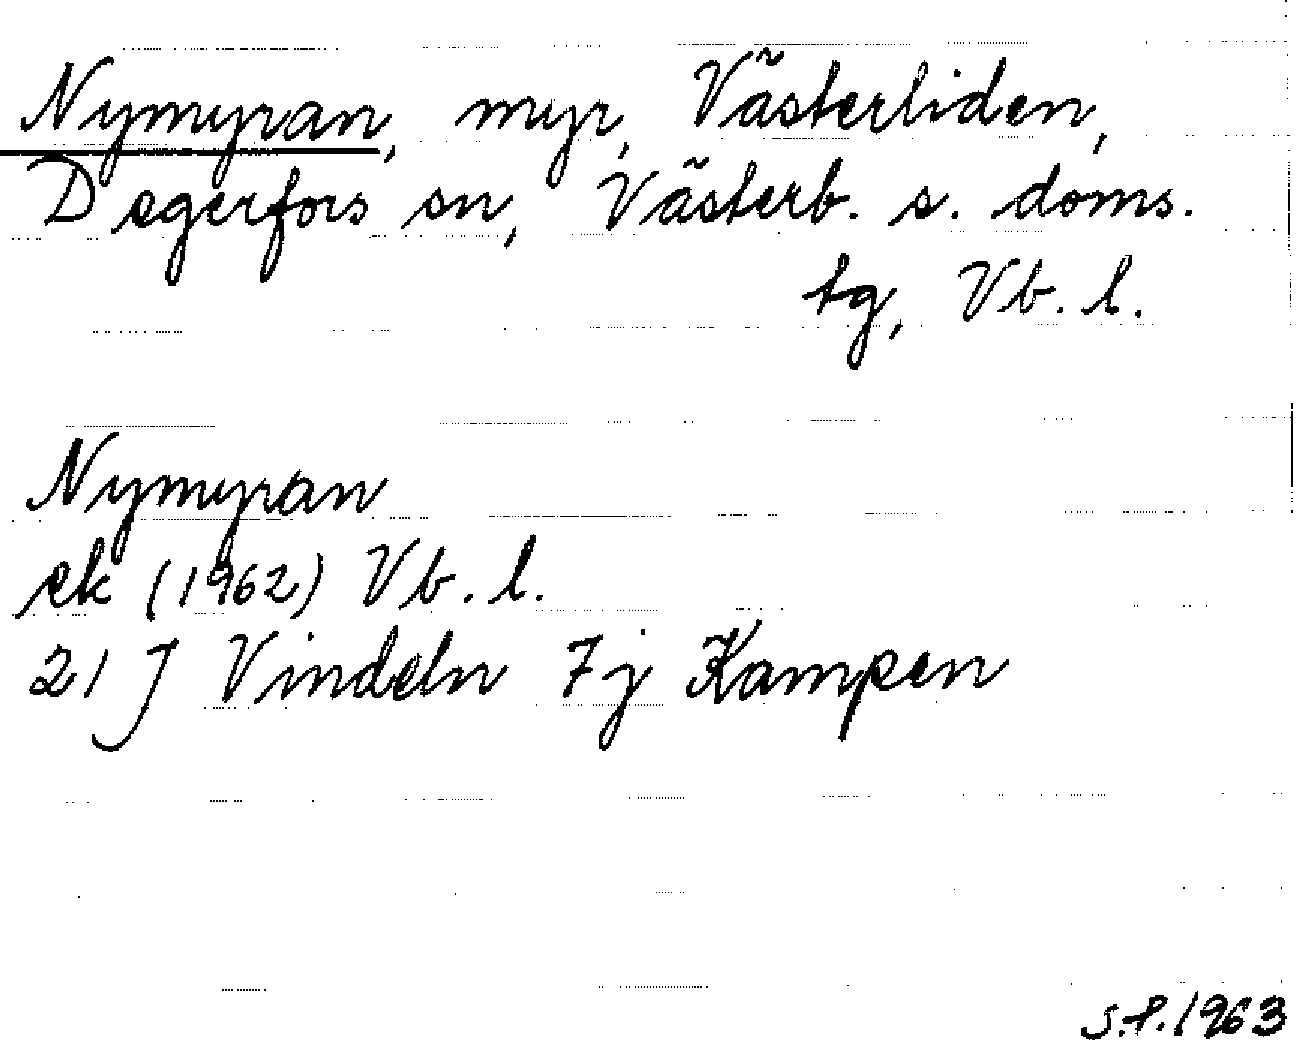 Nymyran, myr, Västerliden,
Degerfors sn, Västerb. s. doms.
tg, Vb. l.
Nymyran
ek (1962) Vb. l.
21 J Vindeln 7j Kampen
S.F. 1963